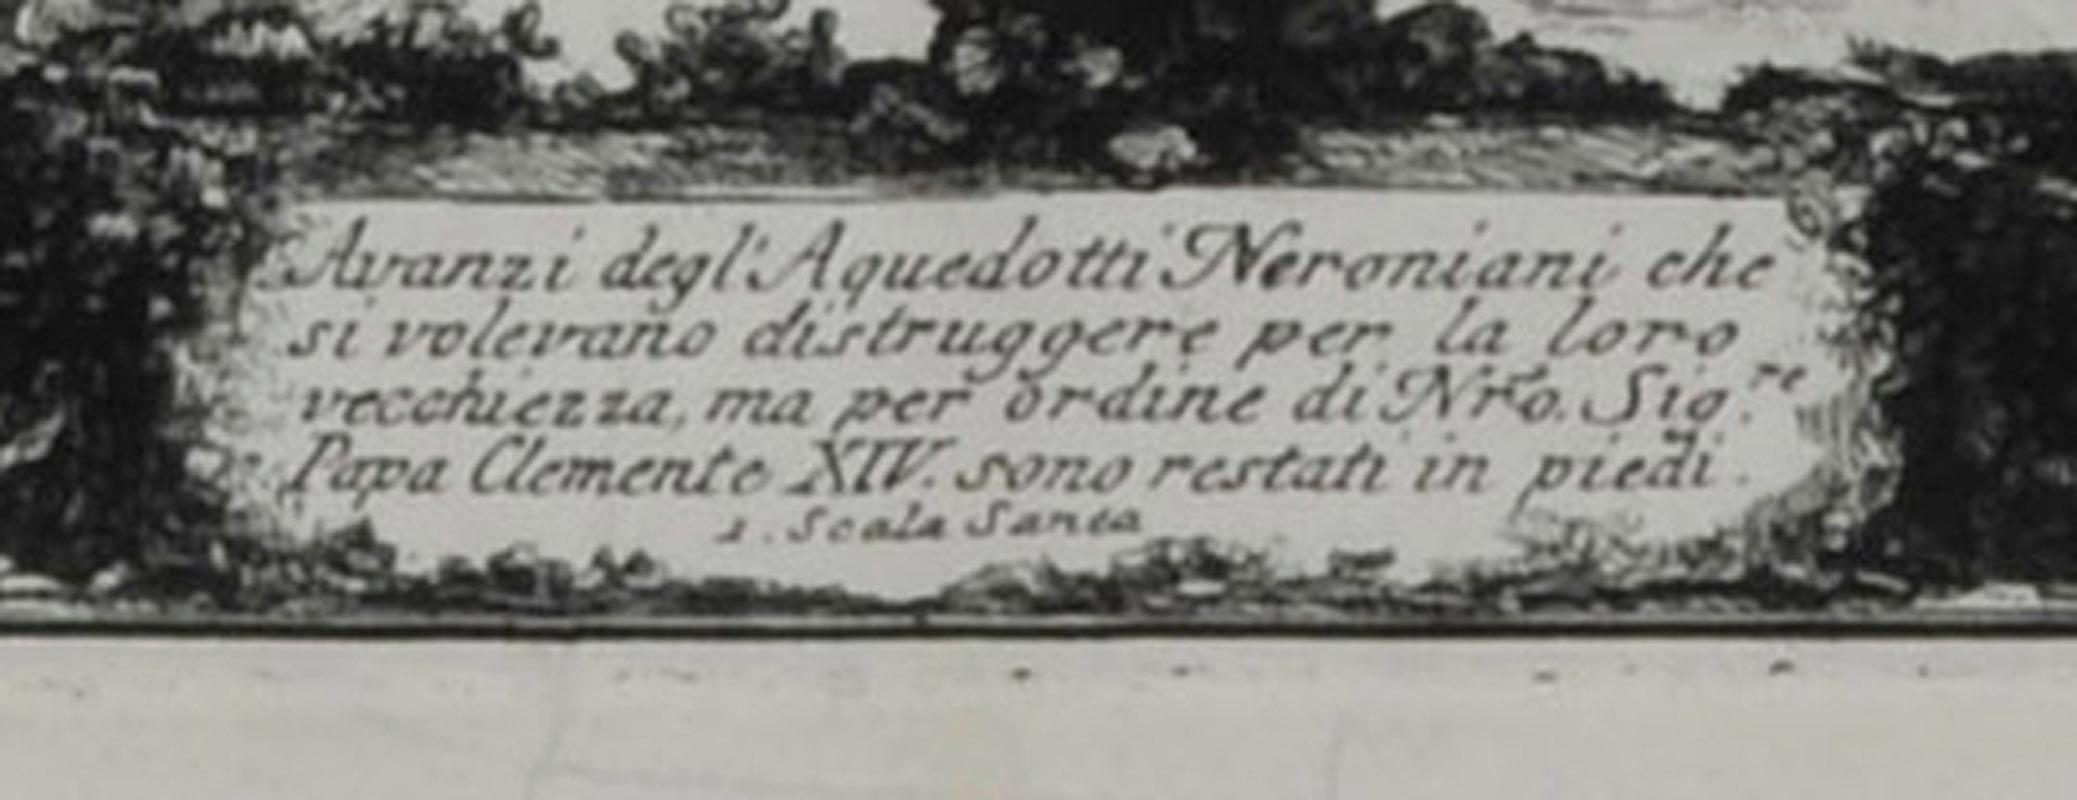 Avanzi degl'Aquedotti Neroniani che
si volevano distruggere per la loro
vecchiezza, ma per ordine di Nrõ. Sig.re
Papa Clemente XIV. sono restati in piedi.
1. Scala Santa